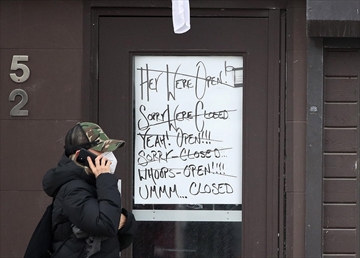 5
2
HEY WERE OPEN!?
SORRY WERE CLOSED
YEAH! OPEN!!!
SORRY-CLOSED...
WHOOPS-OPEN!!!!
UMMM... CLOSED